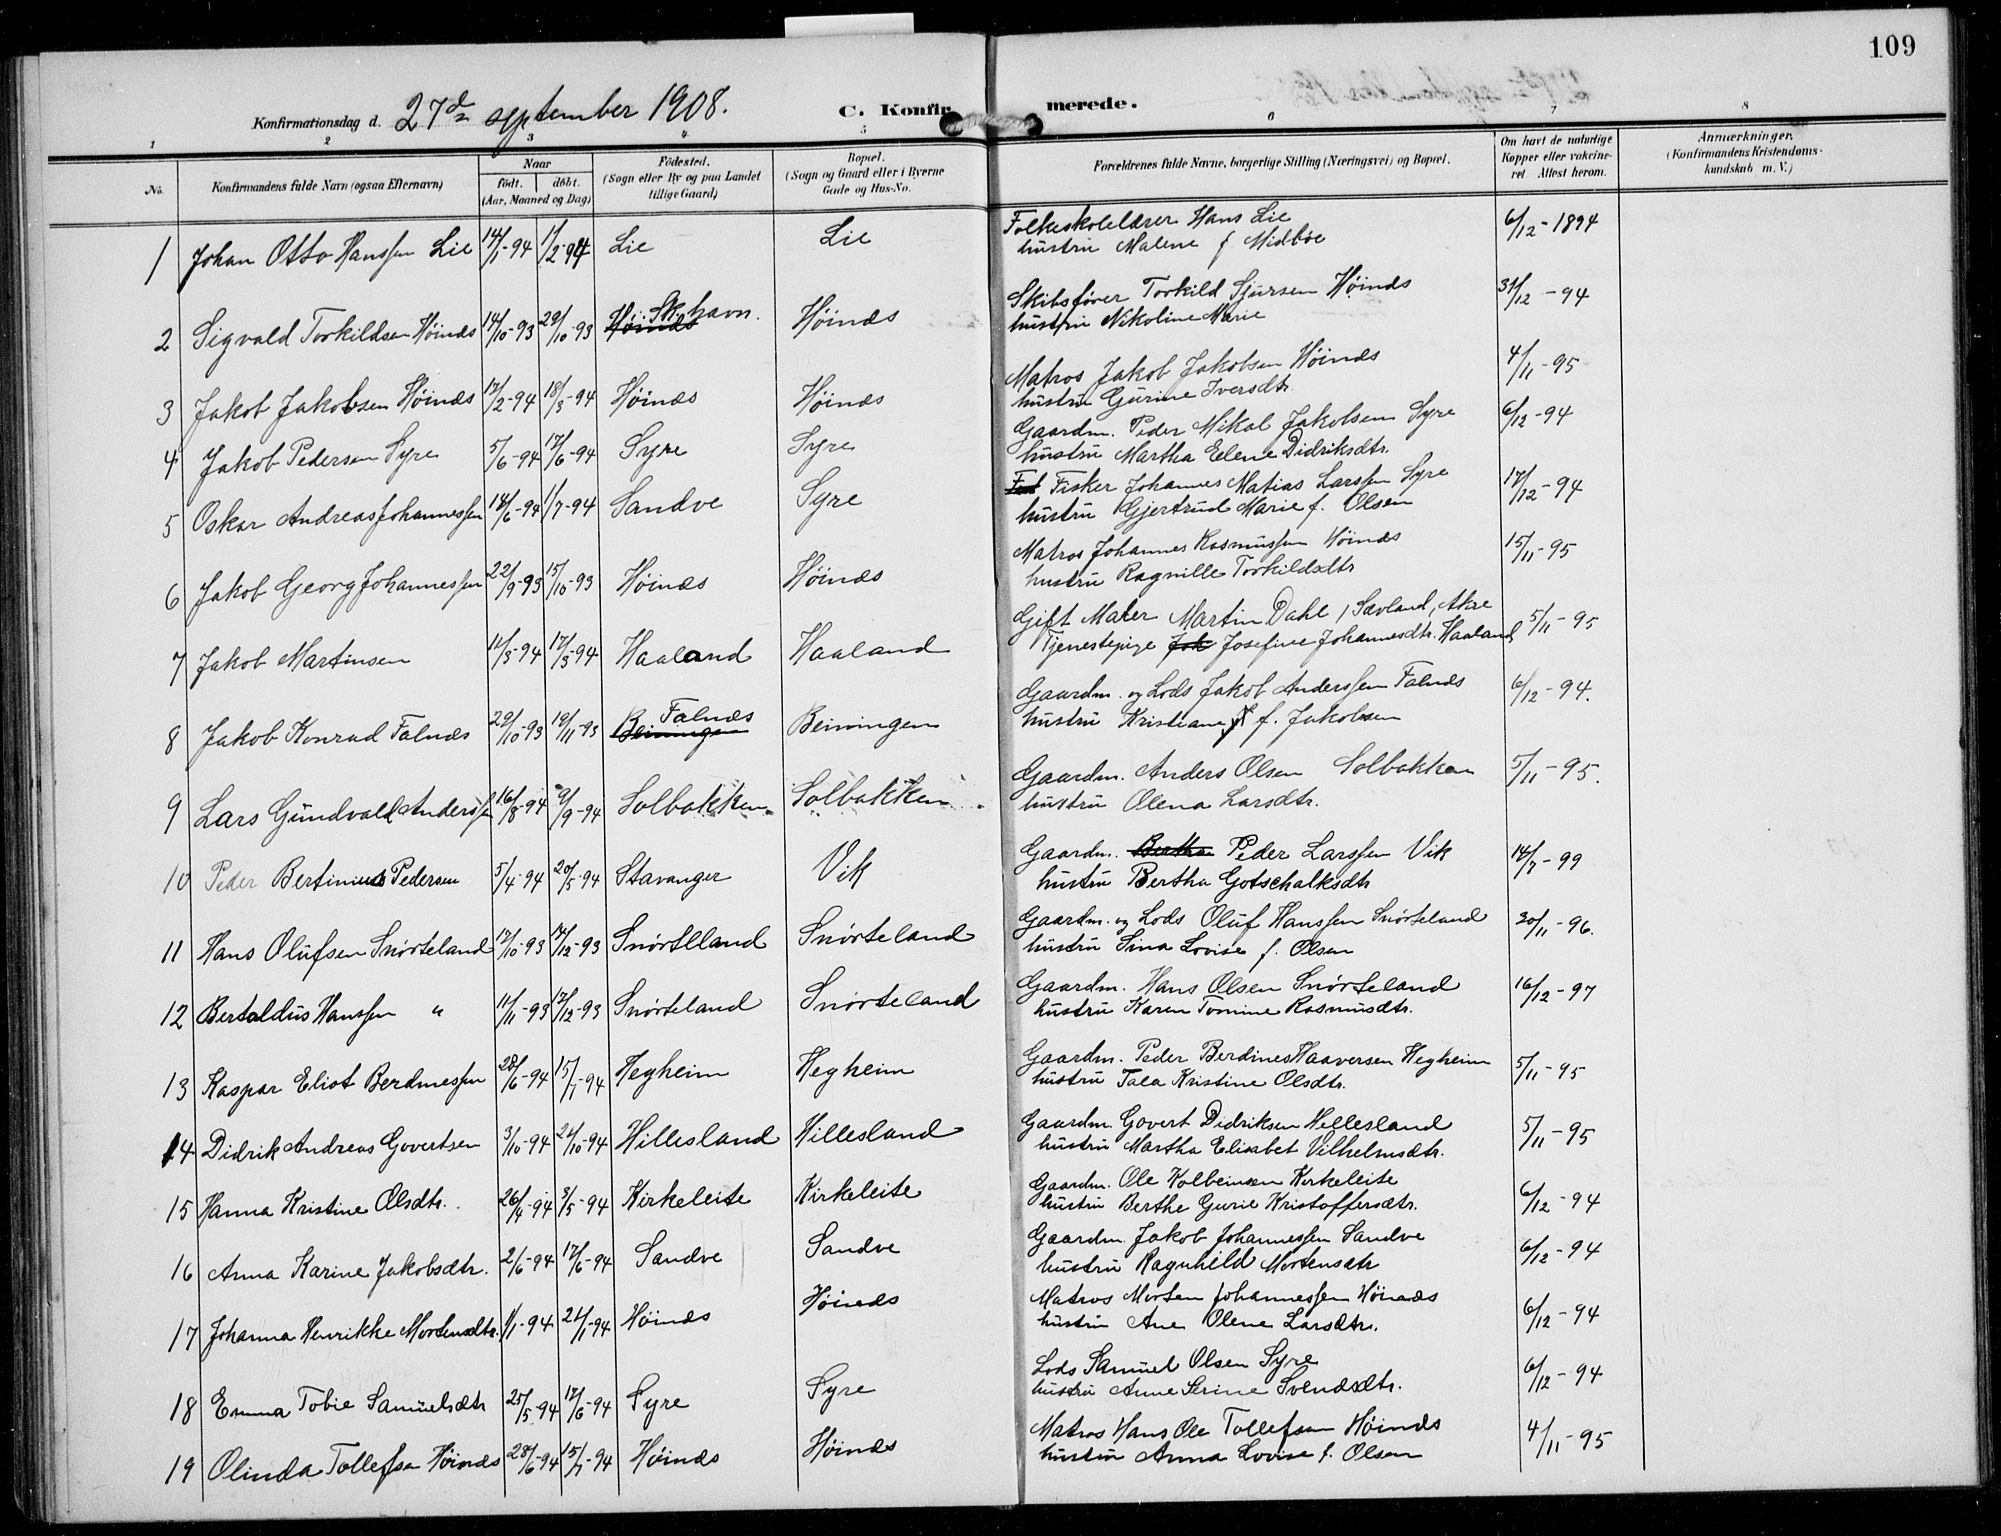 109
Konfirmationsdag d. 27de september 1908. C. Konfirmerede.
1 2 3 4 5 6 7 8
No. Konfirmandens fulde Navn (ogsaa Efternavn) Naar födt. döbt. (Aar, Maaned og Dag) Födested. (Sogn eller By og paa Landet tillige Gaard) Bopæl. (Sogn og Gaard eller i Byerne Gade og Hus-No. Forældrenes fulde Navne, borgerlige Stilling (Næringsvei) og Bopæl. Om havt de naturlige Kopper eller vakcineret. Attest herom. Anmærkninger. (Konfirmandens Kristendomskundskab m. V.)
1 Johan Otto Hanssen Lie 14/1-94 1/2-94 Lie Lie Folkeskolelærer Hans Lie 6/12-1894
hustru Malene f Midböe
2 Sigvald Torkildsen Höinæs 14/10-93 29/10-93 Höinæs Sk.havn. Höinæs Skibsförer Torkild Sjursen Höinæs 31/12-94
hustru Nikoline Marie
3 Jakob Jakobsen Höinæs 17/2-94 18/3-94 Höinæs Höinæs Matros Jakob Jakobsen Höinæs 4/11-95
hustru Gurine Iversdtr.
4 Jakob Pedersen Syre 5/6-94 17/6-94 Syre Syre Gaardm. Peder Mikal Jakobsen Syre 6/12-94
hustru Martha Elene Didriksdtr.
5 Oskar Andreas Johannessen 14/6-94 1/7-94 Sandve Syre Fisker Johannes Matias Larssen Syre 17/12-94
hustru Gjertrud Marie f. Olsen
6 Jakob Georg Johannessen 22/9-93 15/10-93 Höinæs Höinæs Matros Johannes Rasmussen Höinæs 15/11-95
hustru Ragnille Torkildsdtr
7 Jakob Martinsen 11/3-94 17/3-94 Haaland Haaland Gift Maler Martin Dahl, Sævland, Akre 5/11-95
Tjenestepige Josefine Johannesdtr. Haaland
8 Jakob Konrad Falnæs 29/10-93 19/11-93 Beiningen Falnæs Beiningen Gaardm. og Lods Jakob Anderssen Falnæs 6/12-94.
hustru Kristiane f. Jakobsen
9 Lars Gundvald Anderssen 16/8-94 9/9-94 Solbakken Solbakken Gaardm. Anders Olsen Solbakken 5/11-95.
hustru Olena Larsdtr.
10 Peder Bertinius Pedersen 5/4-94 20/5-94 Stavanger Vik Gaardm. Bertha Peder Larssen Vik 14/7-99
hustru Bertha Gotschalksdtr
11 Hans Olufsen Snörteland 17/10-93 17/12-93 Snörteland Snörteland Gaardm. og Lods Oluf Hanssen Snörteland 30/11-96.
hustru Sina Lovise f. Olsen
12 Bertaldus Hanssen " 11/11-93 17/12-93 Snörteland Snörteland Gaardm. Hans Olsen Snörteland 16/12-97
hustru Karen Tomine Rasmusdtr.
13 Kaspar Eliot Berdinessen 28/6-94 15/7-94 Hegheim Hegheim Gaardm. Peder Berdines Haaversen Hegheim 5/11-95
hustru Tala Kristine Olsdtr.
14 Didrik Andreas Govertsen 3/10-94 21/10-94 Hillesland Hillesland Gaardm. Govert Didriksen Hillesland 5/11-95
hustru Martha Elisabet Vilhelmsdtr.
15 Hanna Kristine Olsdtr. 26/4-94 3/5-94 Kirkeleite Kirkeleite Gaardm. Ole Kolbeinsen Kirkeleite 6/12-94
hustru Berthe Gurie Kristoffersdtr.
16 Anna Karine Jakobsdtr. 2/6-94 17/6-94 Sandve Sandve Gaardm. Jakob Johannessen Sandve 6/12-94
hustru Ragnhild Mortensdtr
17 Johanna Henrikke Mortensdtr. 1/1-94 21/1-94 Höinæs Höinæs Matros Morten Johannessen Höinæs 6/12-94
hustru Ane Olene Larsdtr.
18 Emma Tobie Samuelsdtr 25/5-94 17/6-94 Syre Syre Lods Samuel Olsen Syre 6/12-94
hustru Anne Serine Svendsdtr.
19 Olinda Tollefsen Höinæs 28/6-94 15/7-94 Höinæs Höinæs Matros Hans Ole Tollefsen Höinæs 4/11-95
hustru Anna Lovise f. Olsen